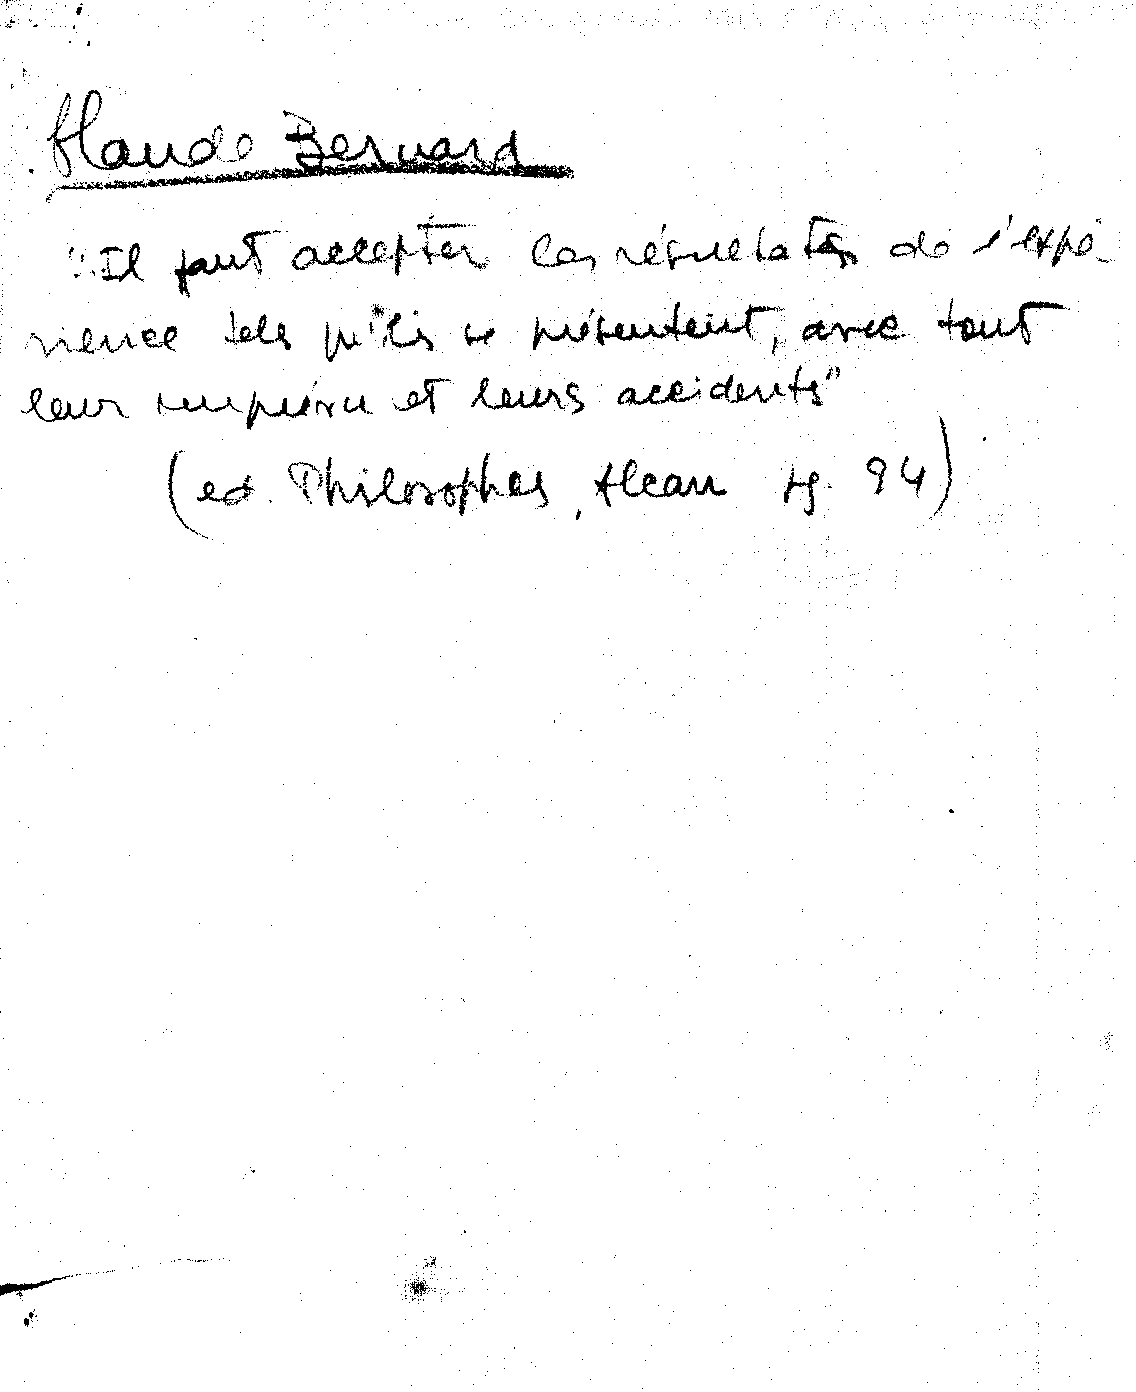 Claude Bernard
"Il faut accepter les résultats de l'expé
rience tels qu'ils se présentent, avec tout
leur imprévu et leurs accidents"
(ed. Philosophes, Alcan pg. 94)